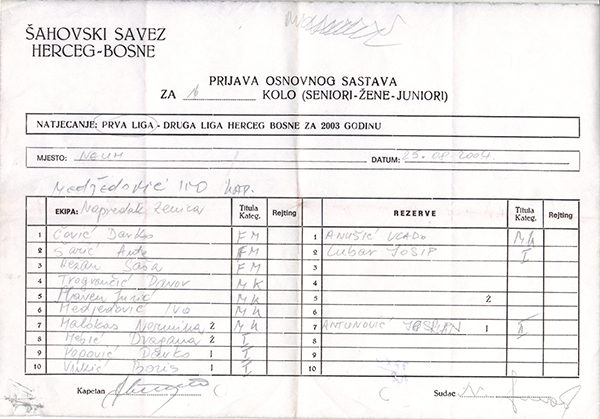 ŠAHOVSKI SAVEZ
HERCEG-BOSNE
PRIJAVA OSNOVNOG SASTAVA
ZA KOLO (SENIORI-ŽENE-JUNIORI)
NATJECANJE: PRVA LIGA - DRUGA LIGA HERCEG BOSNE ZA 2003 GODINU
MJESTO: NEUM DATUM: 25.08.2004.
Medjedović IVO KAP.
EKIPA: Napredak Zenica Titula Kateg. Rejting REZERVE Titula Kateg. Rejting
1 Ćović Darko FM 1 ANUŠIĆ VLADO MK
2 Sarić Ante FM 2 Lubar JOSIP I
3 Saša FM 3
4 Davor MK 4
5 Jurić MK 5 Ž
6 Medjedović Ivo MK 6
7 Nermina Ž MK 7 ANTUNOVIĆ I II
8 Mešić Dragana Ž I 8
9 Popović Darko I I 9
10 Vukić Boris I I 10
Kapetan Sudac